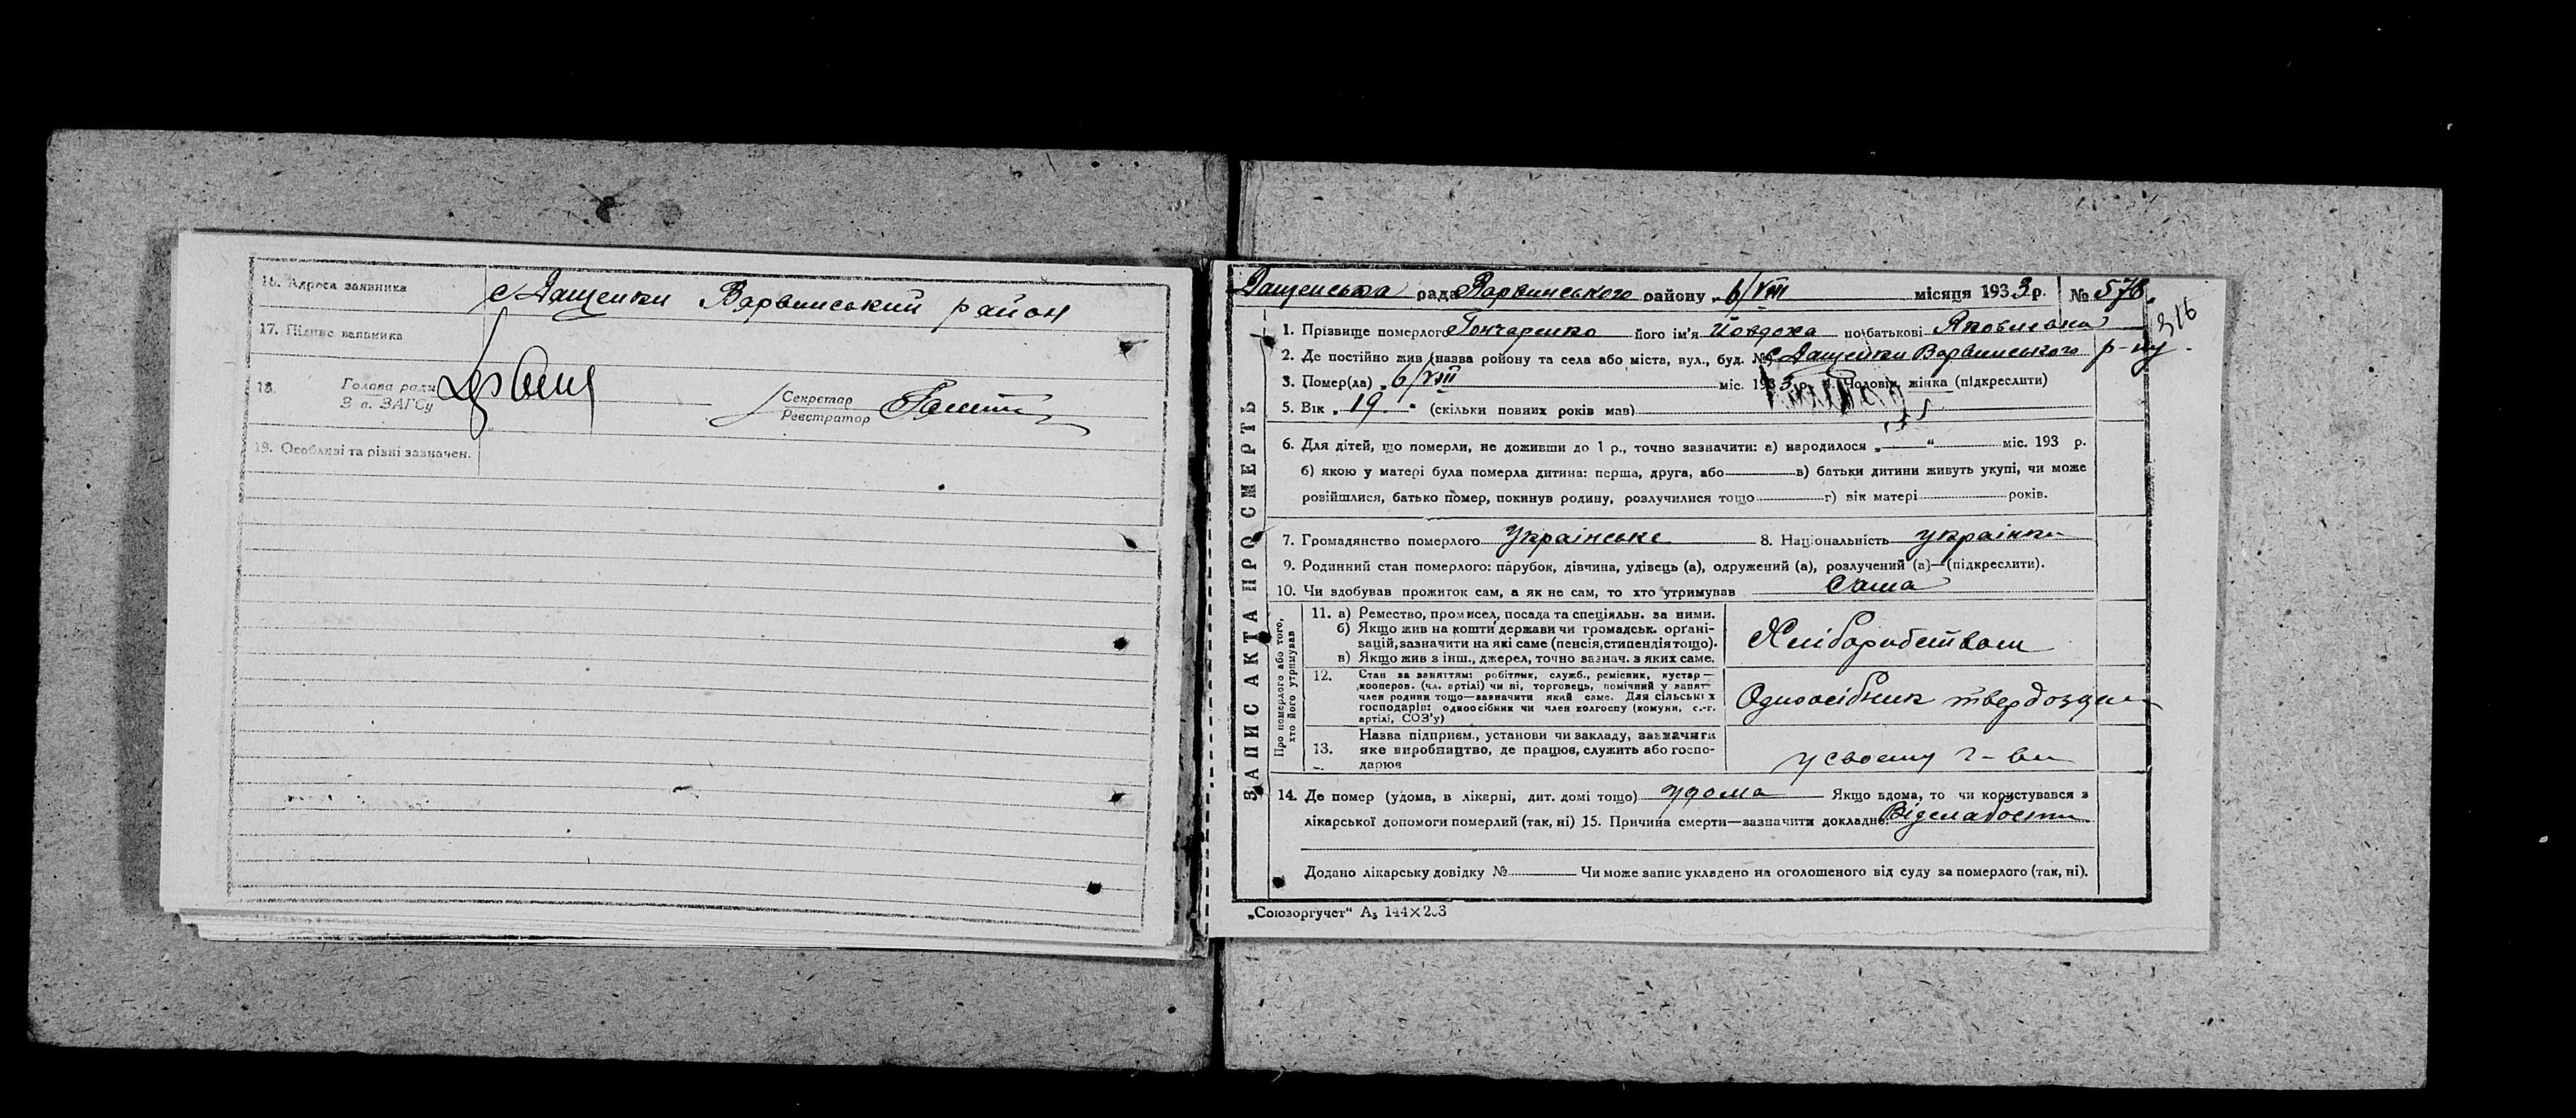 16. Адреса заявника с Дащенки Варвинський район
17. Підпис заявника
18. Голова ради
З в. ЗАГСу
Секретар
Реєстратор
19. Особливі та різні зазначен.
ЗАПИС АКТА ПРО СМЕРТЬ
Дащенська рада Варвинського району „ 6/VIII місяця 1933 р. № 578
316
1. Прізвище померлого Гончаренко його ім'я Йовдоха по батькові Яковлевна
2. Де постійно жив (назва ройону та села або міста, вул., буд. № с Дащенки Варвинського р-ну
3. Помер(ла) „ 6/VIII міс. 1933 р. 4. Чоловік, жінка (підкреслити)
5. Вік „ 19 " (скільки повних років мав)
6. Для дітей, що померли, не доживши до 1 р., точно зазначити: а) народилося „ " міс. 193 р.
б) якою у матері була померла дитина: перша, друга, або в) батьки дитини живуть укупі, чи може
розійшлися, батько помер, покинув родину, розлучилися тощо г) вік матері років.
7. Громадянство померлого Українське 8. Національність українка
9. Родинний стан померлого: парубок, дівчина, удівець (а), одружений (а), розлучений (а)—(підкреслити).
10. Чи здобував прожиток сам, а як не сам, то хто утримував Сама
Про померлого або того, хто його утримував
11. а) Ремество, промисел, посада та спеціяльн. за ними.
б) Якщо жив на кошти держави чи громадськ. органі-
зацій, зазначити на які саме (пенсія, стипендія тощо).
в) Якщо жив з інш., джерел, точно зазнач. з яких саме.
Хліборобством
12. Стан за заняттям: робітник, служб., ремісник, кустар—
кооперов. (чл. артілі) чи ні, торговець, помічний у занят-
член родини тощо—зазначити який саме. Для сільських
господарів: одноосібник чи член колгоспу (комуни, с.-г.
артілі, СОЗ'у)
Одноосібник твердоздач
13. Назва підприєм., установи чи закладу, зазначити
яке виробництво, де працює, служить або госпо-
дарює
у своєму г-ви
14. Де помер (удома, в лікарні, дит. домі тощо) удома Якщо вдома, то чи користувався з
лікарської допомоги померлий (так, ні) 15. Причина смерти—зазначити докладно: Від слабости
Додано лікарську довідку № Чи може запис укладено на оголошеного від суду за померлого (так, ні).
„Союзоргучет“ А₅ 144×203